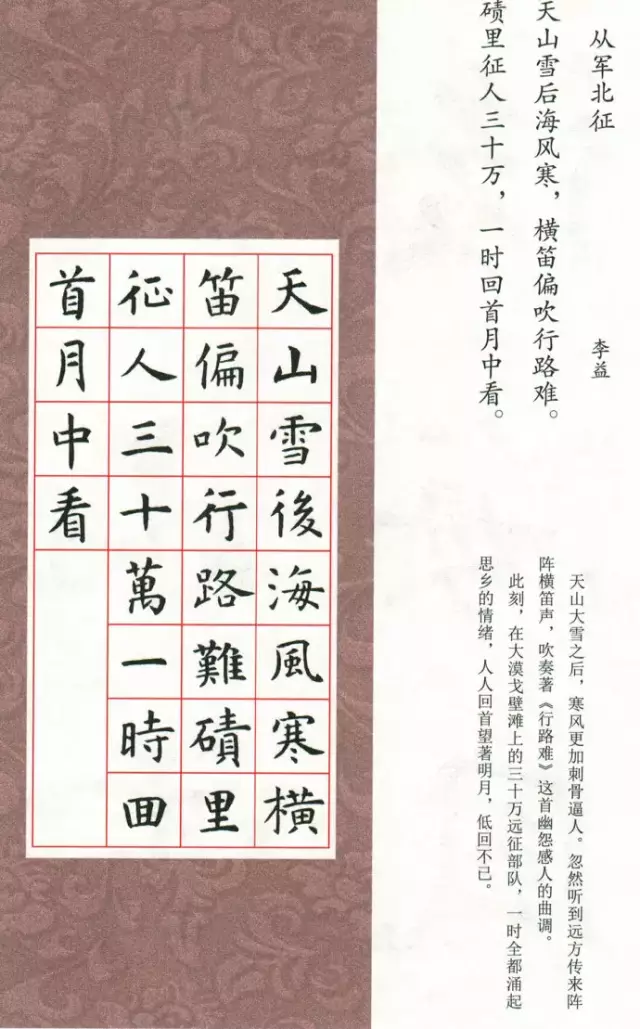 从军北征
李益
天山雪后海风寒，横笛偏吹行路难。
碛里征人三十万，一时回首月中看。
天山大雪之后，寒风更加刺骨逼人。忽然听到远方传来阵
阵横笛声，吹奏著《行路难》这首幽怨感人的曲调。
此刻，在大漠戈壁滩上的三十万远征部队，一时全都涌起
思乡的情绪，人人回首望著明月，低回不已。
天山雪後海風寒橫
笛偏吹行路難磧里
征人三十萬一時回
首月中看